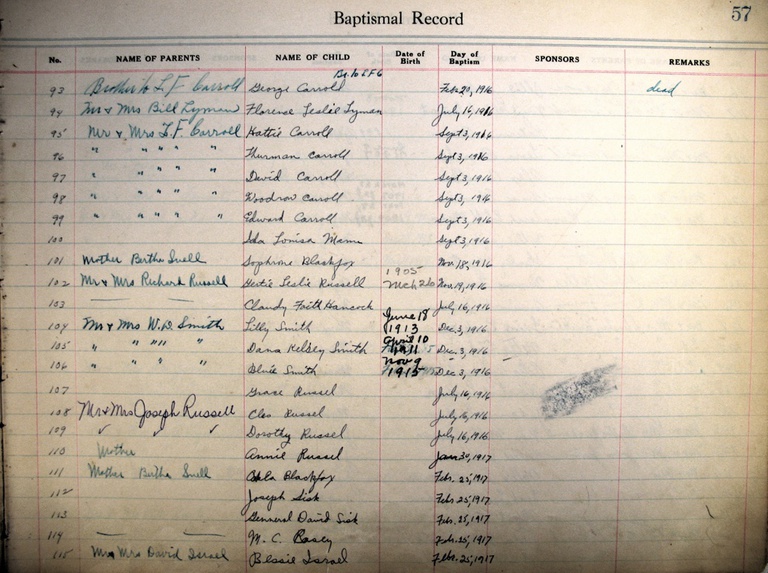 Baptismal Record 57
No. NAME OF PARENTS NAME OF CHILD Date of Birth Day of Baptism SPONSORS REMARKS
Bro. to L F G
93 Brother to L. F. Carroll George Carroll Feb. 20, 1916 dead
94 Mr & Mrs Bill Lyman Florence Leslie Lyman July 16, 1916
95 Mr & Mrs L. F. Carroll Hattie Carroll Sept 3, 1916
96 " " " " " Thurman Carroll Sept 3, 1916
97 " " " " " David Carroll Sept 3, 1916
98 " " " " " Woodrow Carroll Sept 3, 1916
99 " " " " " Edward Carroll Sept 3, 1916
100 Ida Louisa Mann Sept 3, 1916
101 Mother Bertha Snell Sophrone Blackfox Nov. 18, 1916
102 Mr & Mrs Richard Russell Leslie Russell 1905 Mch 26 Nov. 19, 1916
103 — — Claudy Faith Hancock July 16, 1916
104 Mr & Mrs W. D. Smith Lilly Smith June 18 1913 Dec. 3, 1916
105 " " " " " Dana Kelsey Smith April 10 1911 Dec. 3, 1916
106 " " " " Elsie Smith Nov 9 1915 Dec 3, 1916
107 Grace Russel July 16, 1916
108 Mr & Mrs Joseph Russell Cleo Russel July 16, 1916
109 ✓ ✓ ✓ Dorothy Russel July 16, 1916
110 Mother Annie Russel June 30, 1917
111 Mother Bertha Snell Blackfox Feb. 25, 1917
112 Joseph Sisk Feb 25, 1917
113 General David Sisk Feb. 25, 1917
114 — — M. C. Rasey Feb. 25, 1917
115 Mr & Mrs David Israel Bessie Israel Feb. 25, 1917